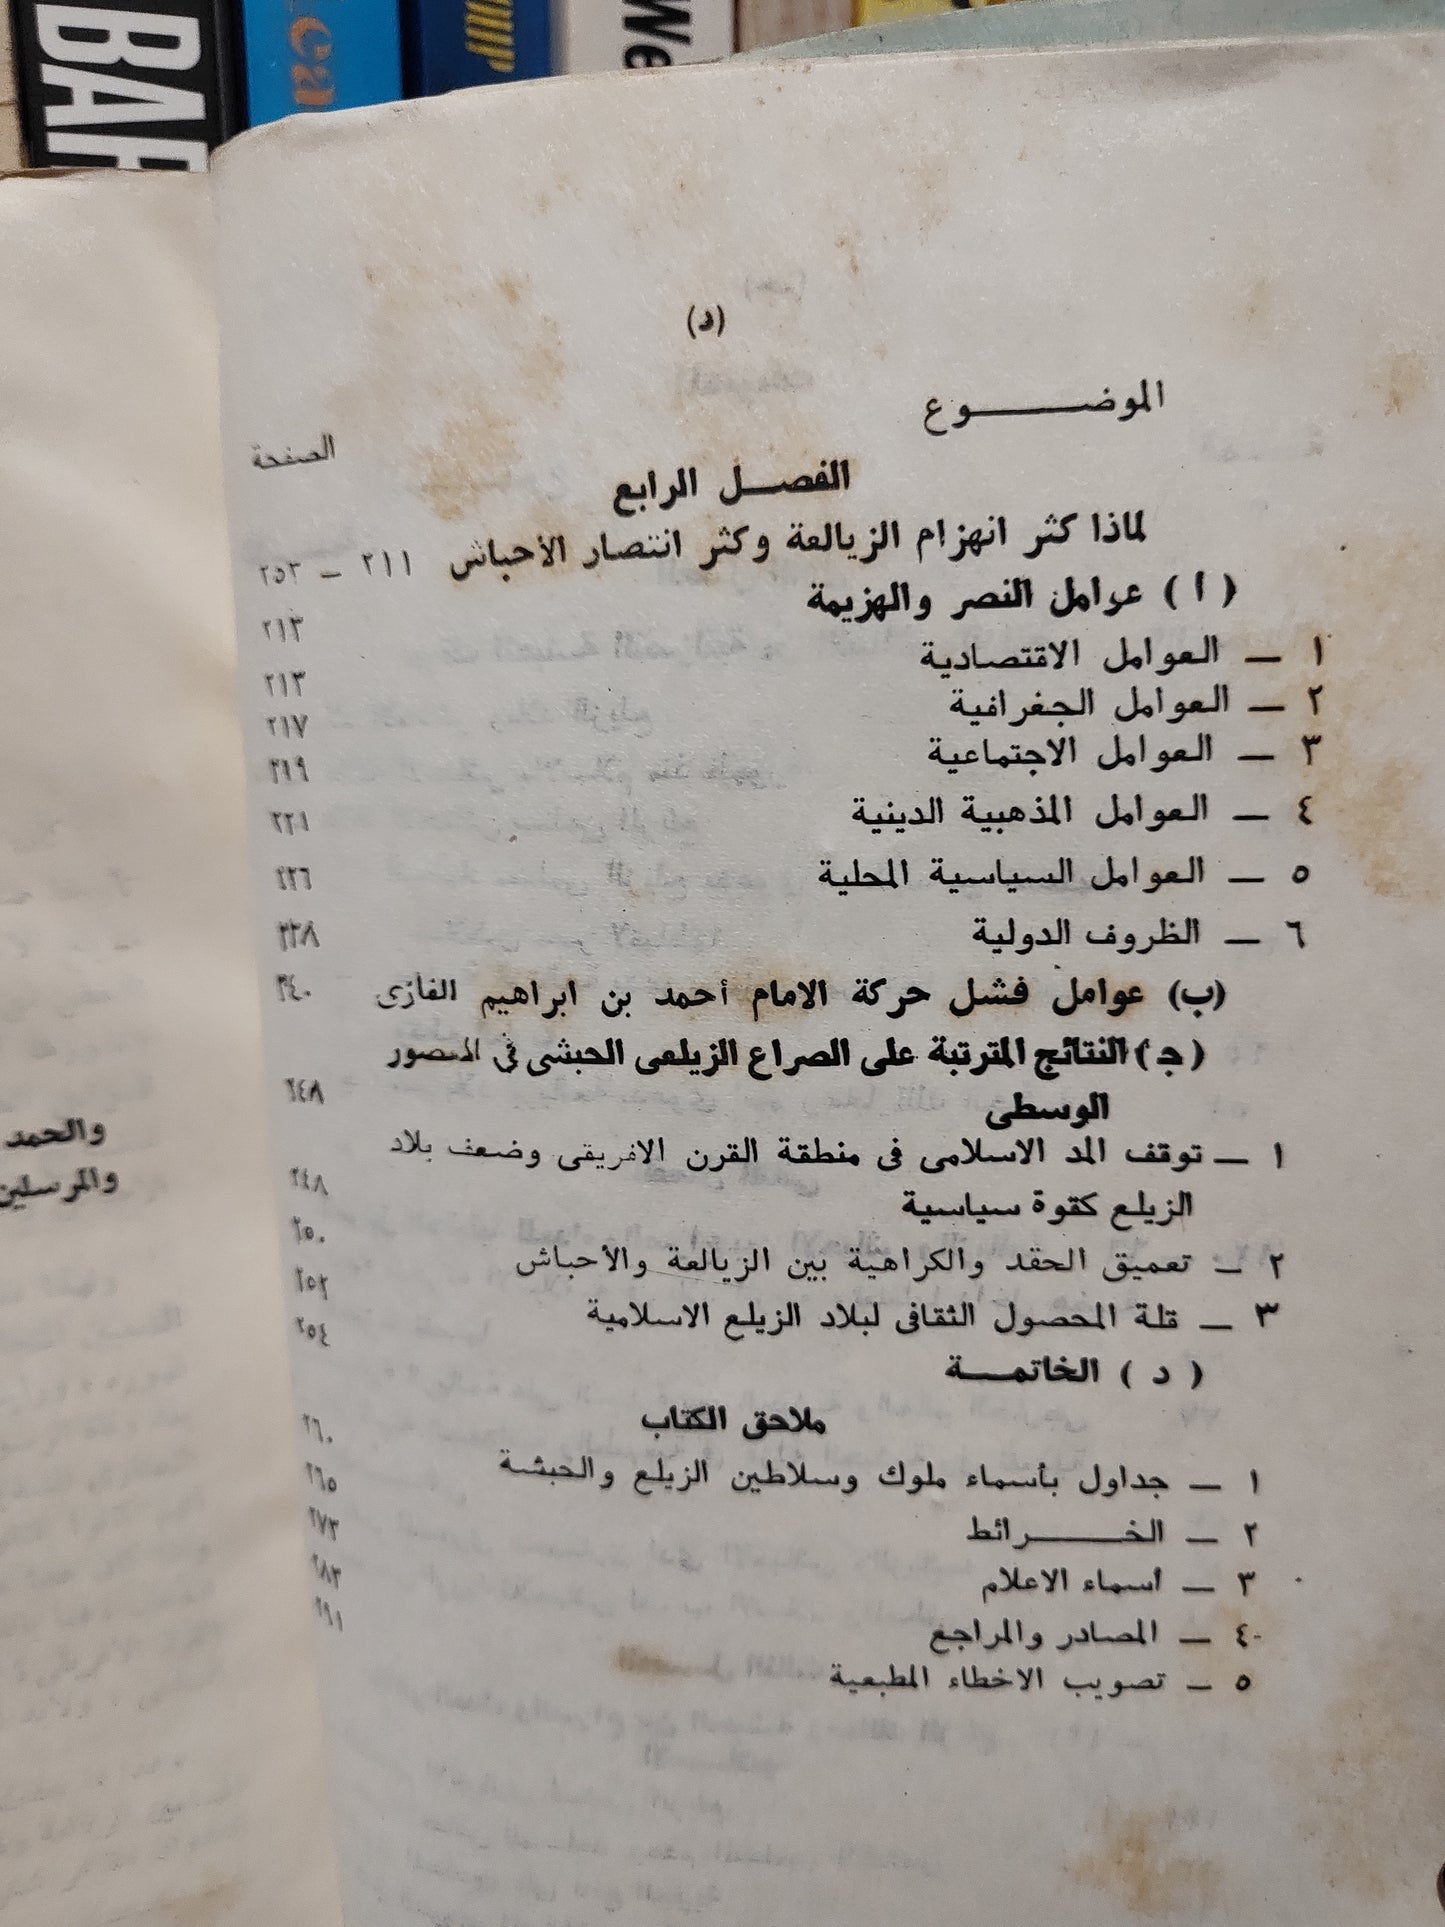 BAR
ca
We
(د)
الموضـــــــوع
الصفحة
الفصـــل الرابع
لماذا كثر انهزام الزيالعة وكثر انتصار الأحباش ٢١١ – ٢٥٣
( ا ) عوامل النصر والهزيمة ٢١٣
١ – العوامل الاقتصادية ٢١٣
٢ – العوامل الجغرافية ٢١٧
٣ – العوامل الاجتماعية ٢١٩
٤ – العوامل المذهبية الدينية ٢٢١
٥ – العوامل السياسية المحلية ٢٢٦
٦ – الظروف الدولية ٢٣٨
(ب) عوامل فشل حركة الامام أحمد بن ابراهيم الغازى ٢٤٠
(جـ) النتائج المترتبة على الصراع الزيلعى الحبشى فى العصور
الوسطى ٢٤٨
١ – توقف المد الاسلامى فى منطقة القرن الافريقى وضعف بلاد
الزيلع كقوة سياسية ٢٤٨
٢ – تعميق الحقد والكراهية بين الزيالعة والأحباش ٢٥٠
٣ – قلة المحصول الثقافى لبلاد الزيلع الاسلامية ٢٥٢
( د ) الخاتمـــة ٢٥٤
ملاحق الكتاب
١ – جداول بأسماء ملوك وسلاطين الزيلع والحبشة ٢٦٠
٢ – الخـــــــرائط ٢٦٥
٣ – أسماء الاعلام ٢٧٣
٤ – المصادر والمراجع ٢٨٣
٥ – تصويب الاخطاء المطبعية ٢٩١
والحمد
والمرسلين